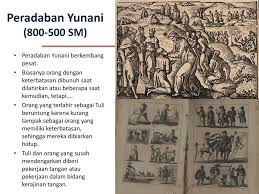 Peradaban Yunani
(800-500 SM)
• Peradaban Yunani berkembang
pesat.
• Biasanya orang dengan
keterbatasan dibunuh saat
dilahirkan atau beberapa saat
kemudian, tetapi....
• Orang yang terlahir sebagai Tuli
beruntung karena kurang
tampak sebagai orang yang
memiliki keterbatasan,
sehingga mereka dibiarkan
hidup.
• Tuli dan orang yang susah
mendengarkan diberi
pekerjaan tangan atau
pekerjaan dalam bidang
kerajinan tangan.